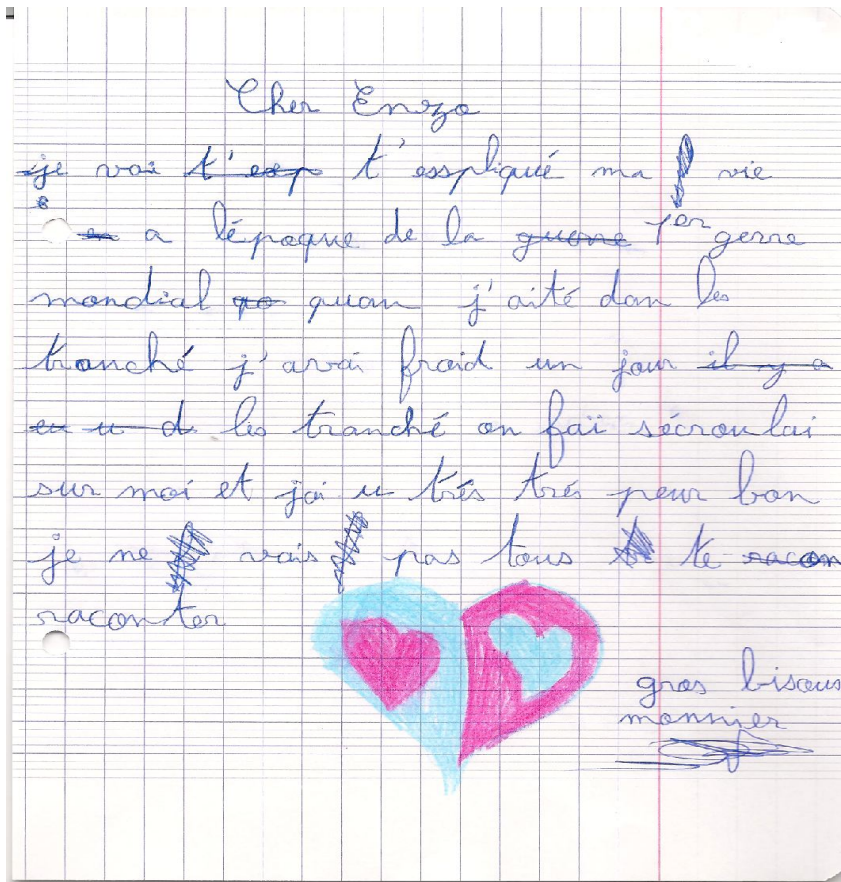 Cher Enzo
je vai t'exp t'esspliqué ma vie
a l'époque de la guerre 1er gerre
mondial qo quan j'aité dan les
tranché j'avai froid un jour il y a
eu u d les tranché on faï sécroulai
sur moi et jai u trés trés peur bon
je ne vais pas tous te racon
raconter
gros bisous
monnier